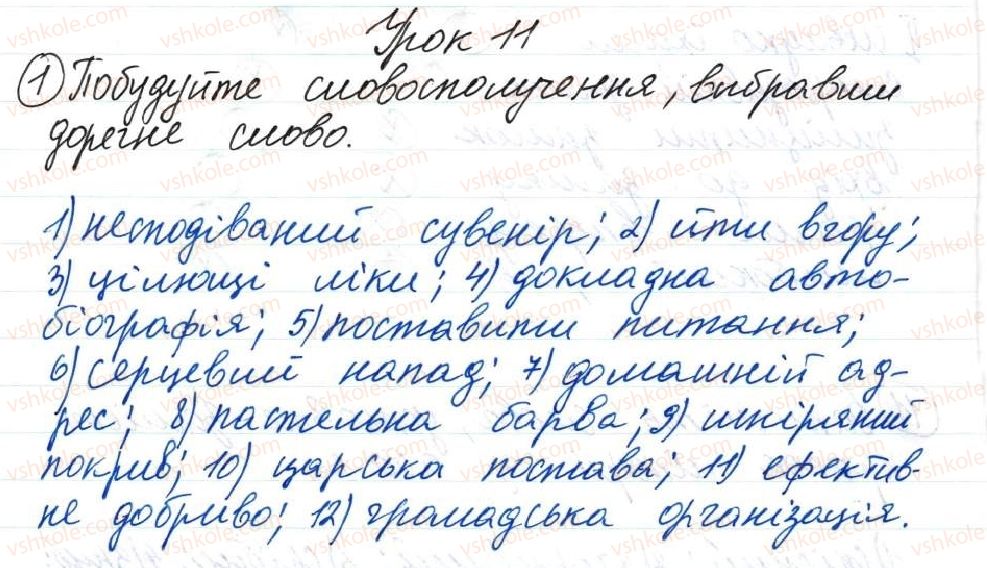 Урок 11
① Побудуйте словосполучення, вибравши
доречне слово.
1) несподіваний сувенір; 2) йти вгору;
3) цілющі ліки; 4) докладна авто-
біографія; 5) поставити питання;
6) серцевий напад; 7) домашній ад-
рес; 8) пастельна барва; 9) шкіряний
покрив; 10) царська постава; 11) ефектив-
не добриво; 12) громадська організація.